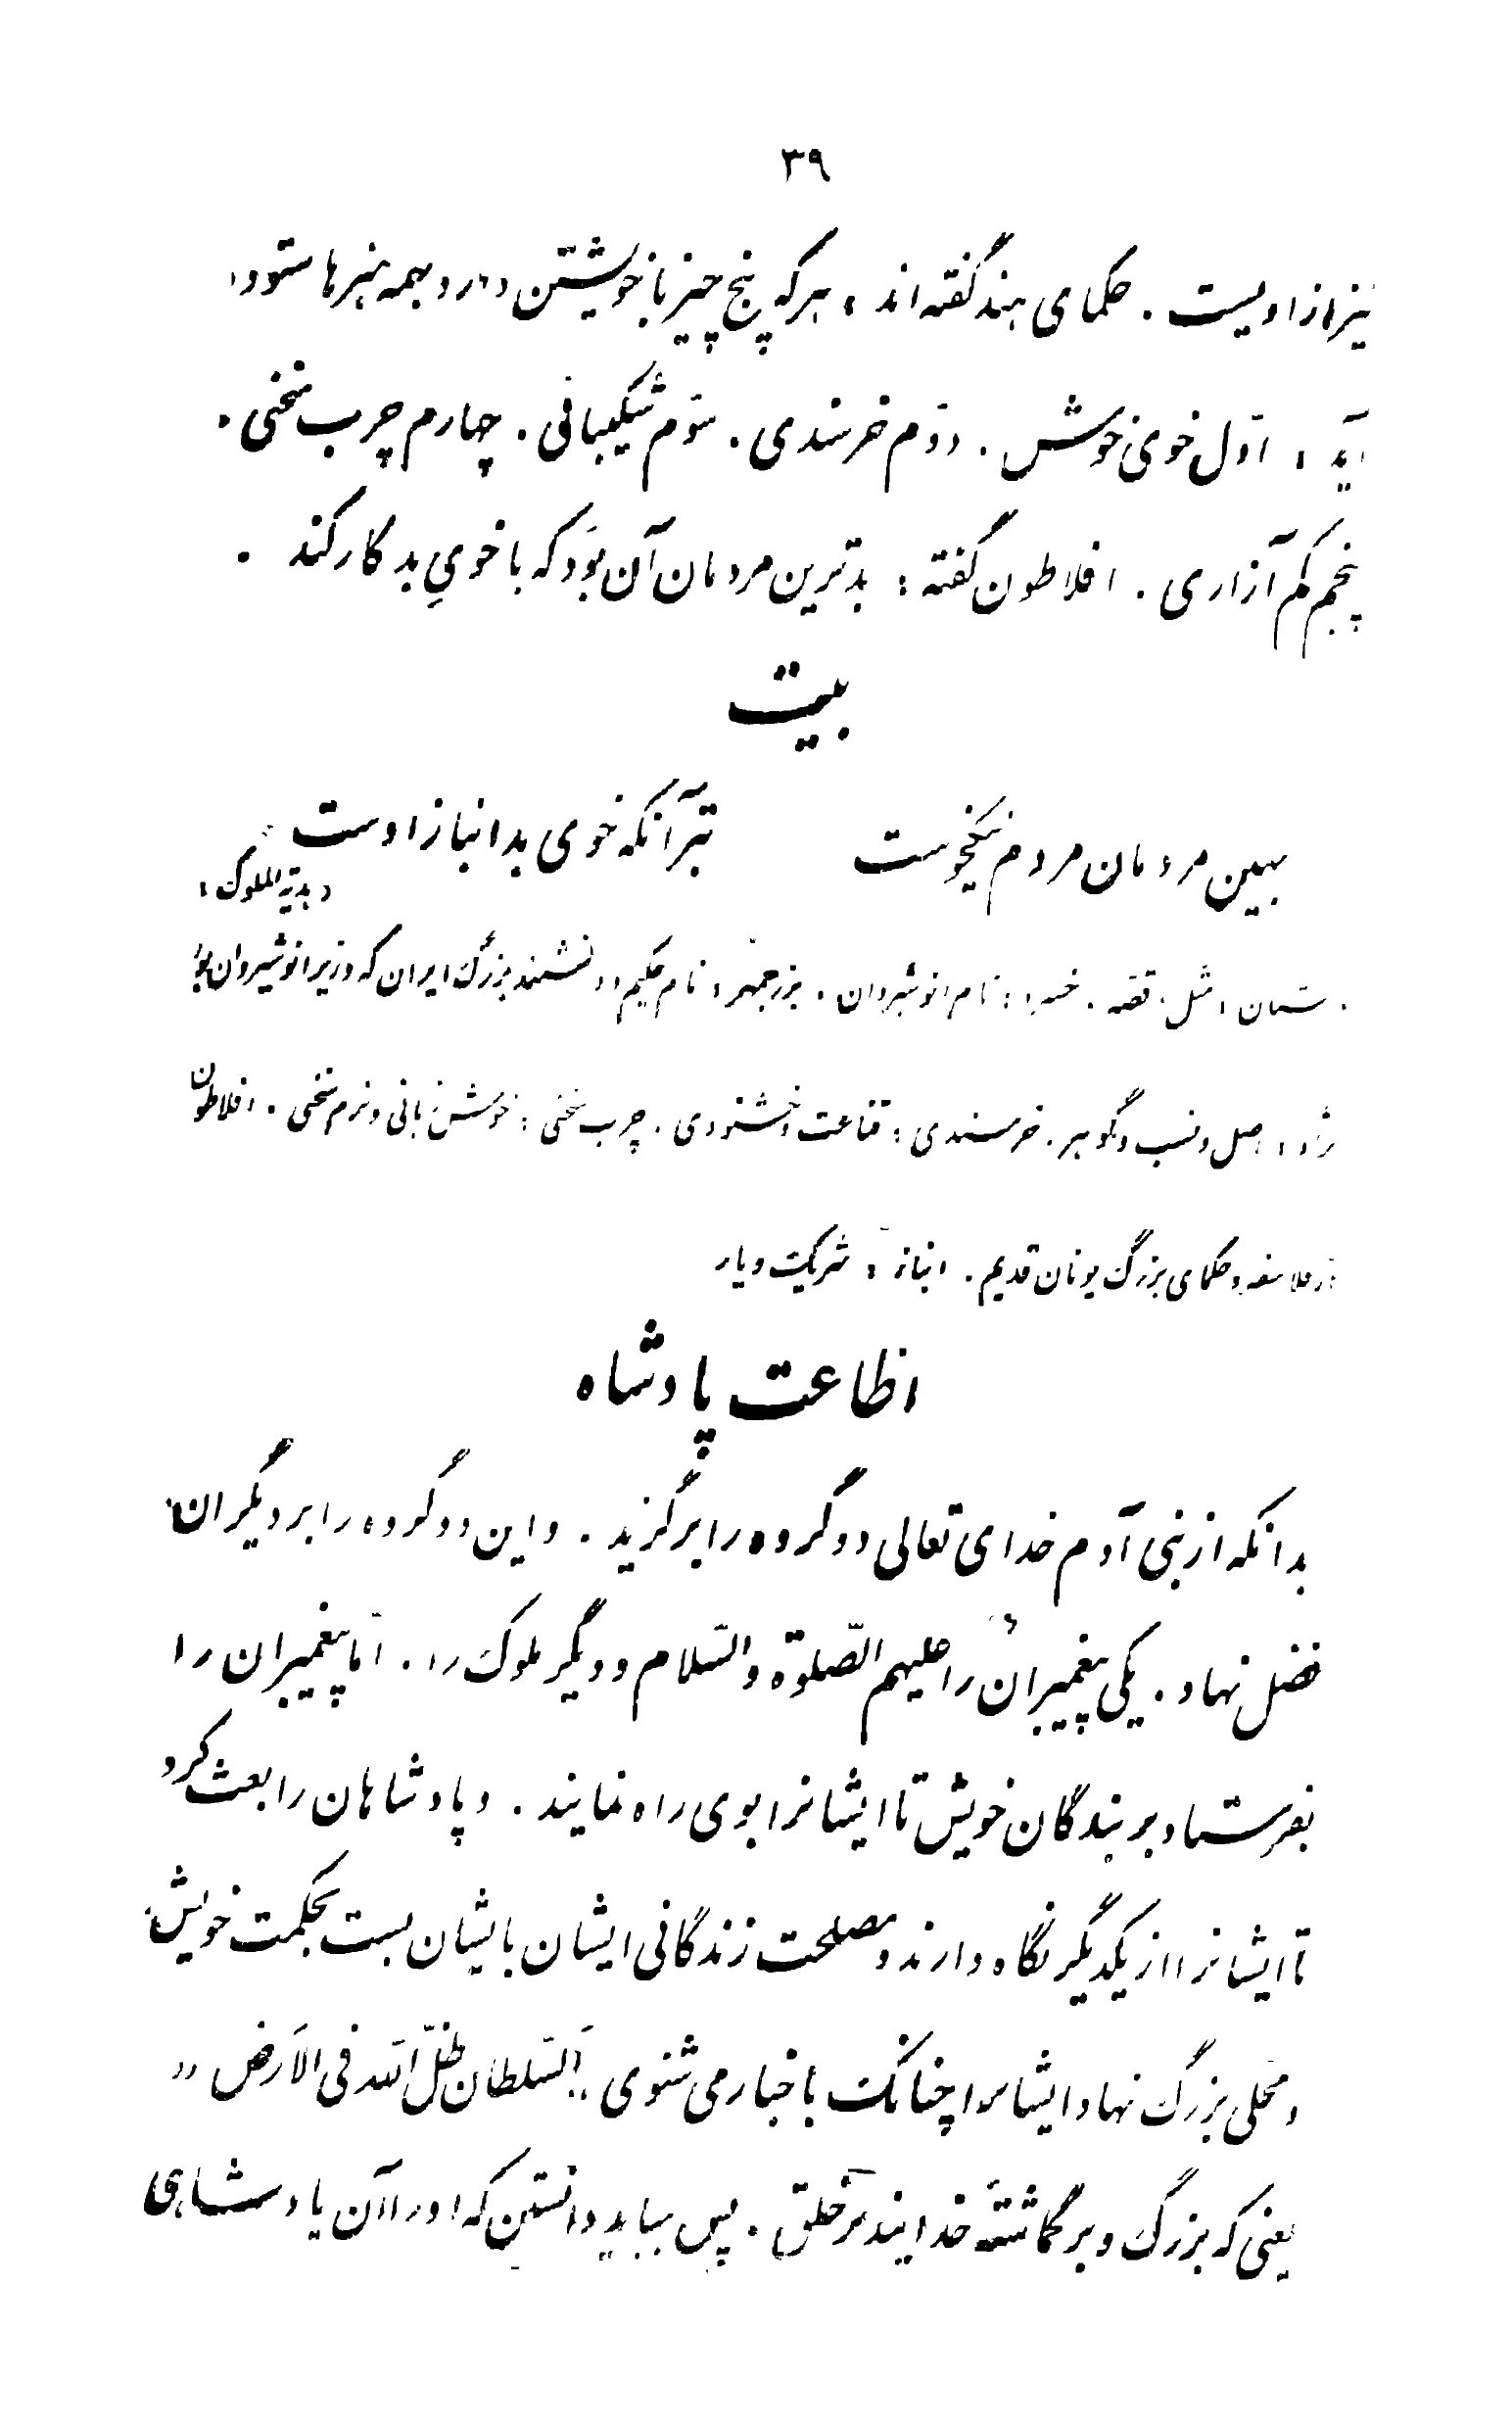 ۳۹
نیز از اوست . حکمای هند گفته‌اند ، هرکه پنج چیز با خویشتن دارد بهمه هنرها ستوده
آید : اوّل خوی خوش . دوّم خرسندی . سوّم شکیبائی . چهارم چرب سخنی .
پنجم کم آزاری . افلاطون گفته : بدترین مردمان آن بَوَد که با خویِ بد کار کند .
بیت
بهین مردمان مردم نیکخوست    بتر آنکه خوی بد انباز اوست
« هدیة الملوک »
داستان : مثل ، قصه . خسرو : نام انوشیروان . بزرجمهر : نام حکیم و دانشمند بزرگ ایران که وزیر انوشیروان بود
نژاد : اصل و نسب و گوهر . خرسندی : قناعت و خشنودی . چرب سخنی : خوش زبانی و نرم سخنی . افلاطون
از فلاسفه و حکمای بزرگ یونان قدیم . انباز : شریک و یار
اطاعت پادشاه
بدانکه از بنی آدم خدای تعالی دو گروه را برگزید . و این دو گروه را بر دیگران
فضل نهاد . یکی پیغمبران را علیهم الصّلوة والسّلام و دیگر ملوک را . امّا پیغمبران را
بفرستاد بر بندگان خویش تا ایشانرا بوی راه نمایند . و پادشاهان را بعث کرد
تا ایشانرا از یکدیگر نگاه دارند و مصلحت زندگانی ایشان بایشان بست بحکمت خویش
و محلّی بزرگ نهاد ایشانرا چنانکه باخبار می شنوی « اَلسّلطان ظلّ الله فی الاَرض »
یعنی که بزرگ و برگماشتهٔ خدایند بر خلق . پس بباید دانستن که او را آن پادشاهی